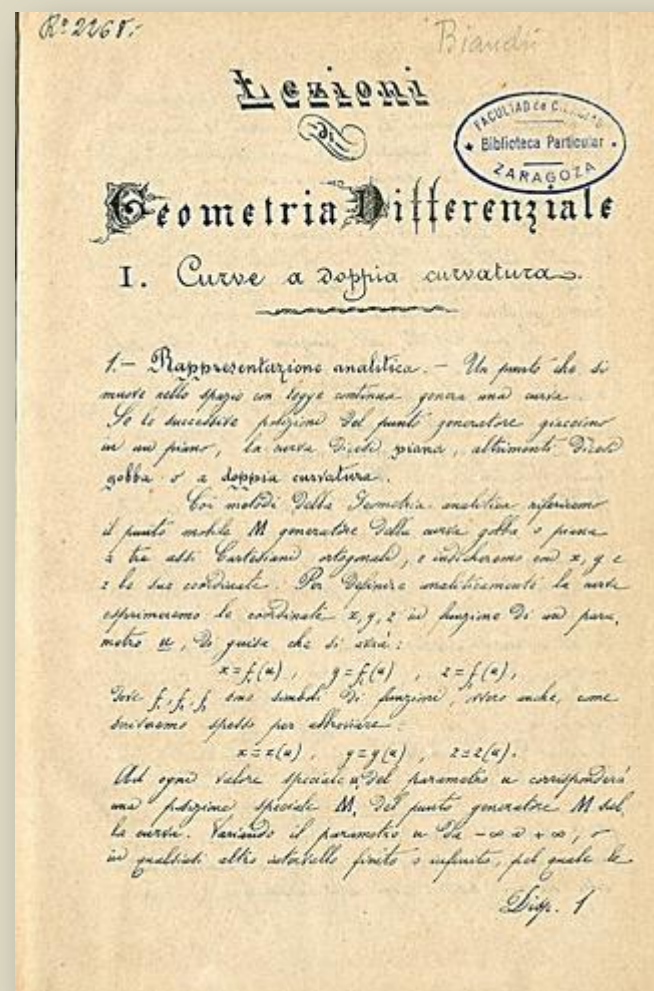 Rº 2268.-
Bianchi
Lezioni
di
FACULTAD de CIENCIAS
Biblioteca Particular
ZARAGOZA
Geometria Differenziale
I. Curve a doppia curvatura.
1.- Rappresentazione analitica. - Un punto che si
muove nello spazio con legge continua genera una curva.
Se le successive posizioni del punto generatore giacciono
in un piano, la curva dicesi piana, altrimenti dicesi
gobba o a doppia curvatura.
Coi metodi della Geometria analitica riferiremo
il punto mobile M generatore della curva gobba o piana
a tre assi Cartesiani ortogonali, e indicheremo con x, y e
z le sue coordinate. Per definire analiticamente la curva
esprimeremo le coordinate x, y, z in funzione di un para,
metro u, di guisa che si avrà:
x = f₁(u) , y = f₂(u) , z = f₃(u),
dove f₁, f₂, f₃ sono simboli di funzioni, ovvero anche, come
scriveremo spesso per abbreviare:
x = x(u) , y = y(u) , z = z(u).
Ad ogni valore speciale u₁ del parametro u corrisponderà
una posizione speciale M₁ del punto generatore M sul,
la curva. Variando il parametro u da -∞ a +∞, o
in qualsiasi altro intervallo finito o infinito, pel quale le
Disp. 1